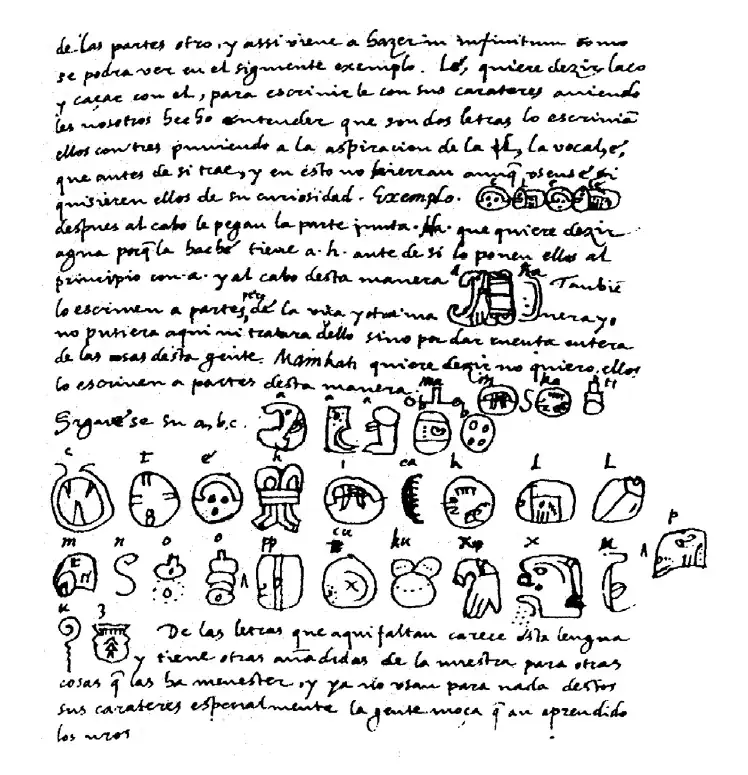 de las partes otro, y assi viene a hazer in infinitum como
se podra ver en el siguiente exemplo. Lé, quiere dezir laço
y caçar con el, para escrivirle con sus carateres aviendo
les nosotros hecho entender que son dos letras lo escrivian
ellos con tres puniendo a la aspiracion de la l, la vocal, é,
que antes de si trae, y en esto no hierran aunq̃ usense si
quisieren ellos de su curiosidad. Exemplo. e l e lé
despues al cabo le pegan la parte junta. Ha. que quiere dezir
agua porq̃ la haché tiene a. h. ante de si lo ponen ellos al
principio con. a. y al cabo desta manera a ha Tanbie
lo escriven a partes, pero de la una y otra ma nera yo
no pusiera aqui ni tratara dello sino por dar cuenta entera
de las cosas desta gente. Mainkati quiere dezir no quiero, ellos
lo escriven a partes desta manera. ma in ka ti
Siguese su a, b, c. a a a b b
c t é h i ca k l l
m n o o pp cu ku x x u p
u z De las letras que aqui faltan carece esta lengua
y tiene otras añadidas de la nuestra para otras
cosas q̃ las ha menester, y ya no usan para nada destos
sus carateres especialmente la gente moça q̃ an aprendido
los nros